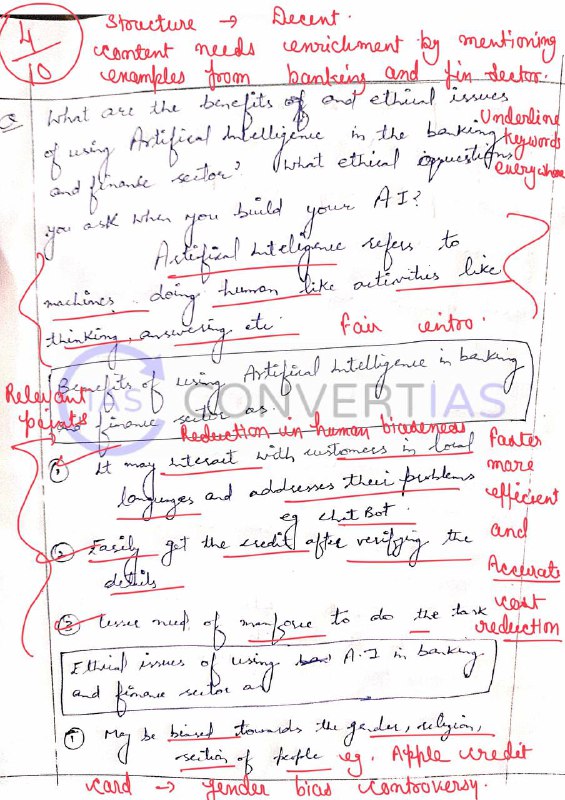 4/10
Structure → Decent.
content needs enrichment by mentioning
examples from banking and fin sector.
Q What are the benefits of and ethical issues
of using Artifical Intelligence in the banking
and finance sector? What ethical questions
you ask when you build your AI?
Underline
keywords
everywhere
Artifical Inteligence refers to
machines doing human like activities like
thinking, answering etc.
Fair intro.
Benefits of using Artifical Intelligence in banking
finance sector as
IAS CONVERTIAS
Relevant
points
Reduction in human biasedness
① It may interact with customers in local
languages and addresses their problems
eg chatBot.
② Easily get the credit after verifying the
details
③ lesser need of manforce to do the task
Faster
more
efficient
and
Accurate
cost
reduction
Ethical issues of using A.I in banking
and finance sector as
① May be biased towards the gender, religion,
section of people eg. Apple credit
card → gender bias controversy.